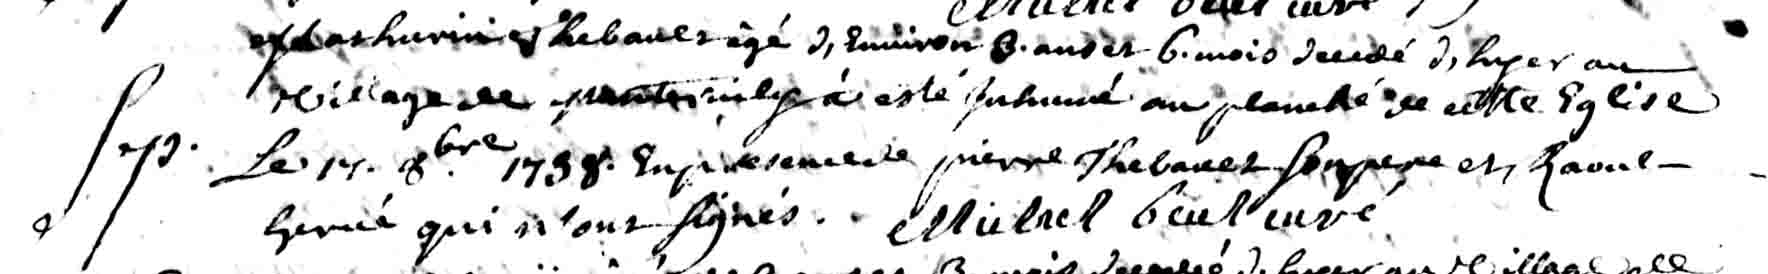 Michel beul curé
Mathurin Thebauet agé d'Environ 3. ans et 6. mois decedé d'hyer au
Village de a esté Inhumé au planché de cette Eglise
Sep. Le 17. 8.bre 1738. En presence de pierre Thebauet Son pere et Raoul
hervié qui n'ont Signés. Michel beul curé
3. mois decedé d'hyer au Village de